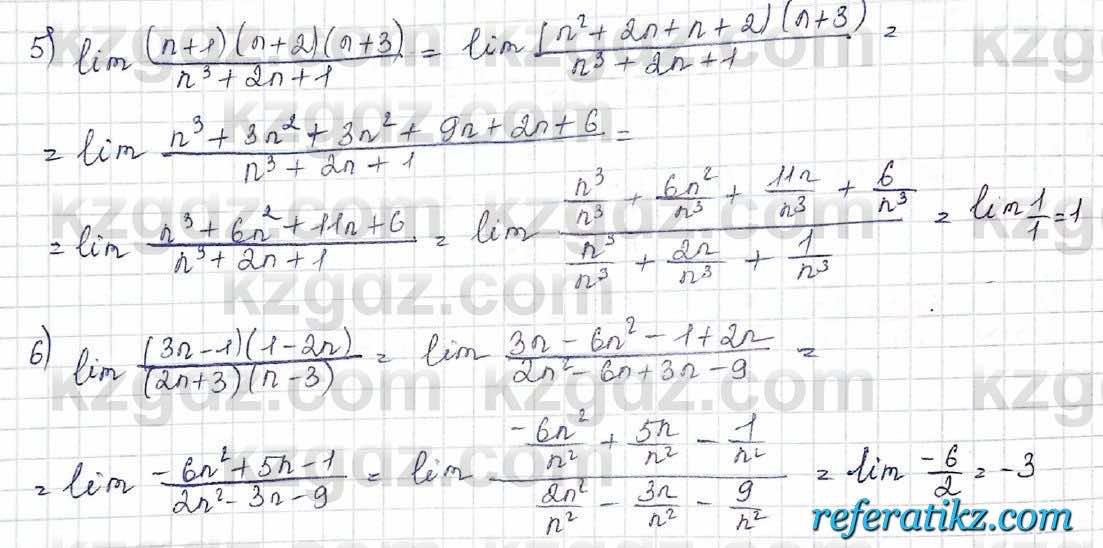 5) lim (n+1)(n+2)(n+3) / n³+2n+1 = lim (n²+2n+n+2)(n+3) / n³+2n+1 =
= lim n³+3n²+3n²+9n+2n+6 / n³+2n+1 =
= lim n³+6n²+11n+6 / n³+2n+1 = lim n³/n³ + 6n²/n³ + 11n/n³ + 6/n³ / n³/n³ + 2n/n³ + 1/n³ = lim 1/1 = 1
6) lim (3n-1)(1-2n) / (2n+3)(n-3) = lim 3n-6n²-1+2n / 2n²-6n+3n-9 =
= lim -6n²+5n-1 / 2n²-3n-9 = lim -6n²/n² + 5n/n² - 1/n² / 2n²/n² - 3n/n² - 9/n² = lim -6/2 = -3
kzgdz.com
referatikz.com